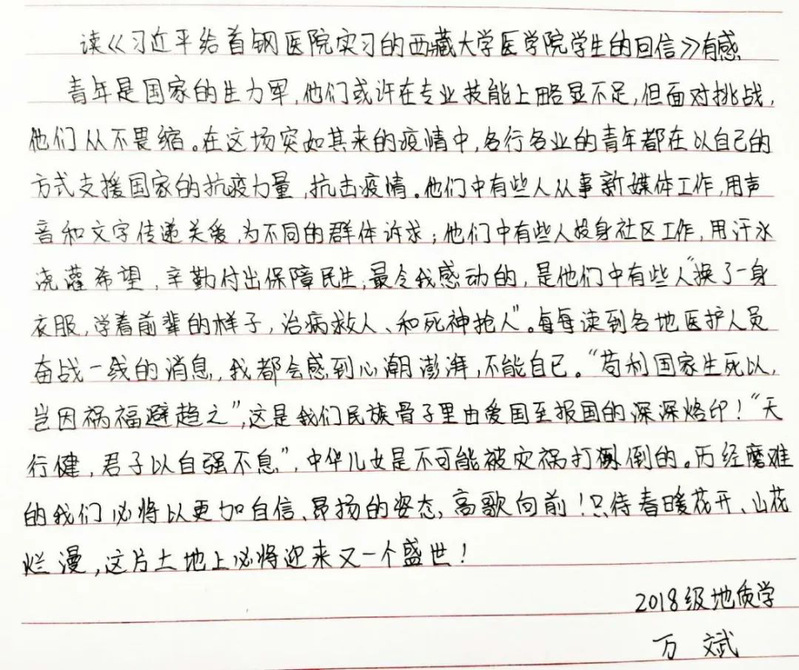 读《习近平给首钢医院实习的西藏大学医学院学生的回信》有感
青年是国家的生力军，他们或许在专业技能上略显不足，但面对挑战，
他们从不畏缩。在这场突如其来的疫情中，各行各业的青年都在以自己的
方式支援国家的抗疫力量，抗击疫情。他们中有些人从事新媒体工作，用声
音和文字传递关爱，为不同的群体诉求；他们中有些人投身社区工作，用汗水
浇灌希望，辛勤付出保障民生，最令我感动的，是他们中有些人“换了一身
衣服，学着前辈的样子，治病救人、和死神抢人”。每每读到各地医护人员
奋战一线的消息，我都会感到心潮澎湃，不能自已。“苟利国家生死以，
岂因祸福避趋之”，这是我们民族骨子里由爱国至报国的深深烙印！“天
行健，君子以自强不息”，中华儿女是不可能被灾祸打倒的。历经磨难
的我们必将以更加自信、昂扬的姿态，高歌向前！只待春暖花开、山花
烂漫，这片土地上必将迎来又一个盛世！
2018级地质学
万斌